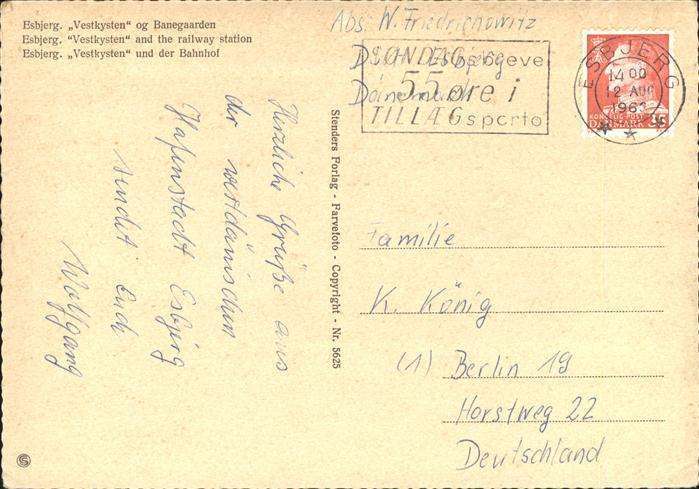 Esbjerg. „Vestkysten" og Banegaarden
Esbjerg. "Vestkysten" and the railway station
Esbjerg. „Vestkysten" und der Bahnhof
Herzliche Grüße aus
der westdänischen
Hafenstadt Esbjerg
sendet Euch
Wolfgang
Stenders Forlag - Farvefoto - Copyright - Nr. 5625
Abs. W. Friedrichowitz
Esbjerg
Dänemark
SØNDAG
55 øre i
TILLÆGsporto
ESBJERG
14 00
12 AUG
1963
KONGELIG POST
DANMARK 35
Familie
K. König
(1) Berlin 19
Horstweg 22
Deutschland